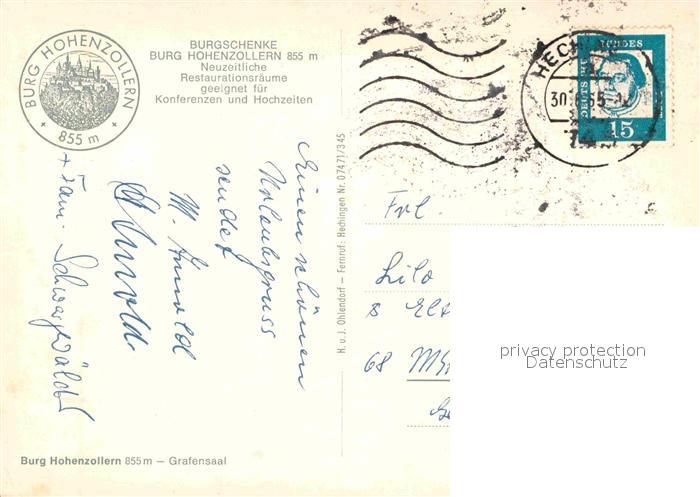 BURG HOHENZOLLERN
855 m
BURGSCHENKE
BURG HOHENZOLLERN 855 m
Neuzeitliche
Restaurationsräume
geeignet für
Konferenzen und Hochzeiten
Einen schönen
Urlaubsgruss
sendet
M. Arnold
Arnold
+ Fam. Schwarzwälder
H. u. J. Ohlendorf – Fernruf: Hechingen Nr. 07471/345
DEUTSCHE BUNDES
15
Frl.
Lilo
8
68
privacy protection
Datenschutz
Burg Hohenzollern 855 m – Grafensaal